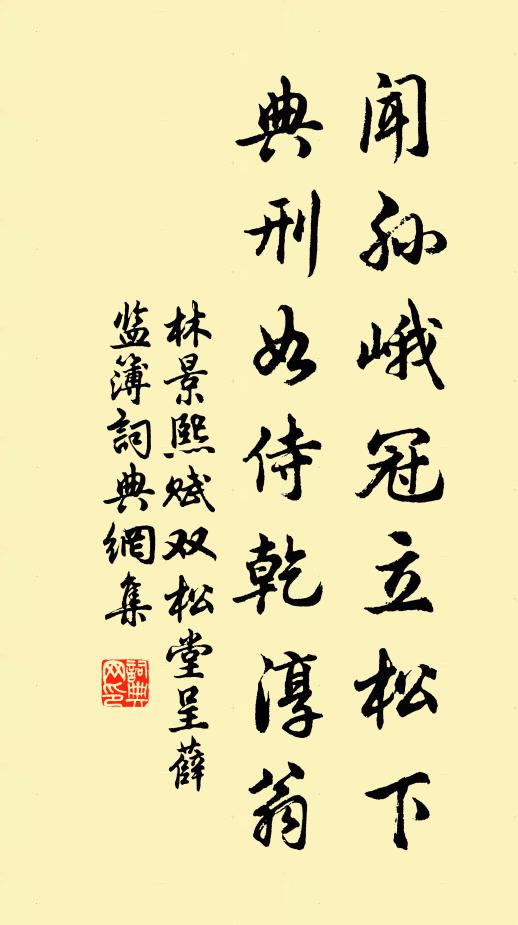 闻孙峨冠立松下
典刑如侍乾淳翁
林景熙赋双松堂呈薛
监簿詞典網集
詞典网印